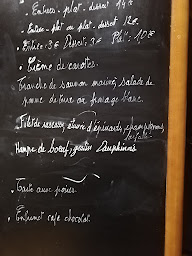 Entrée - plat - dessert 14€
- Entrée - plat ou plat - dessert 12€
- Entrée: 3€ Dessert: 3€ Plat: 10€
• Crème de carottes.
Tranche de saumon mariné, salade de
pomme de terre au fromage blanc.
Filet de rascasse, d'épinards, champignons,
Hampe de bœuf, gratin Dauphinois
• Tarte aux poires.
• Entremet café chocolat.